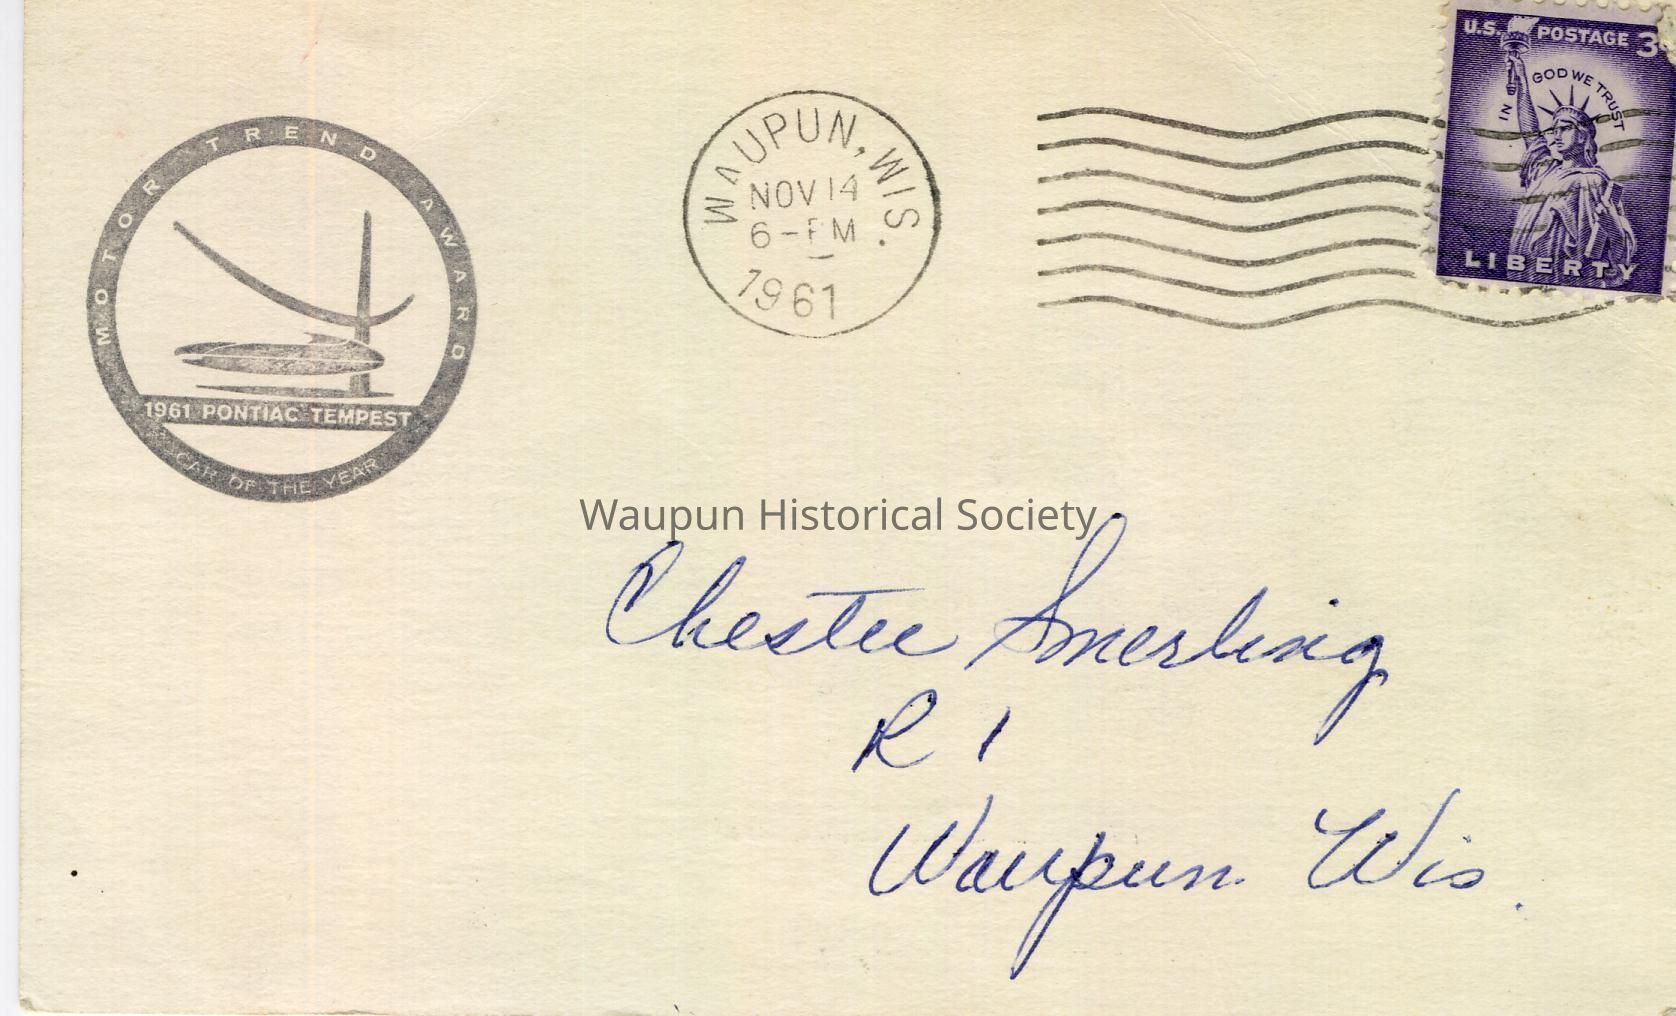 U.S. POSTAGE 3¢
IN GOD WE TRUST
LIBERTY
MOTOR TREND AWARD
1961 PONTIAC TEMPEST
CAR OF THE YEAR
WAUPUN, WIS.
NOV 14
6-PM
1961
Waupun Historical Society
Chester Smerling
R 1
Waupun Wis.